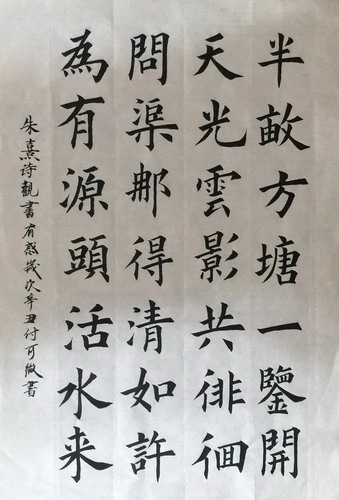 半畝方塘一鑒開
天光雲影共徘徊
問渠那得清如許
為有源頭活水来
朱熹诗觀書有感歲次辛丑付可微書